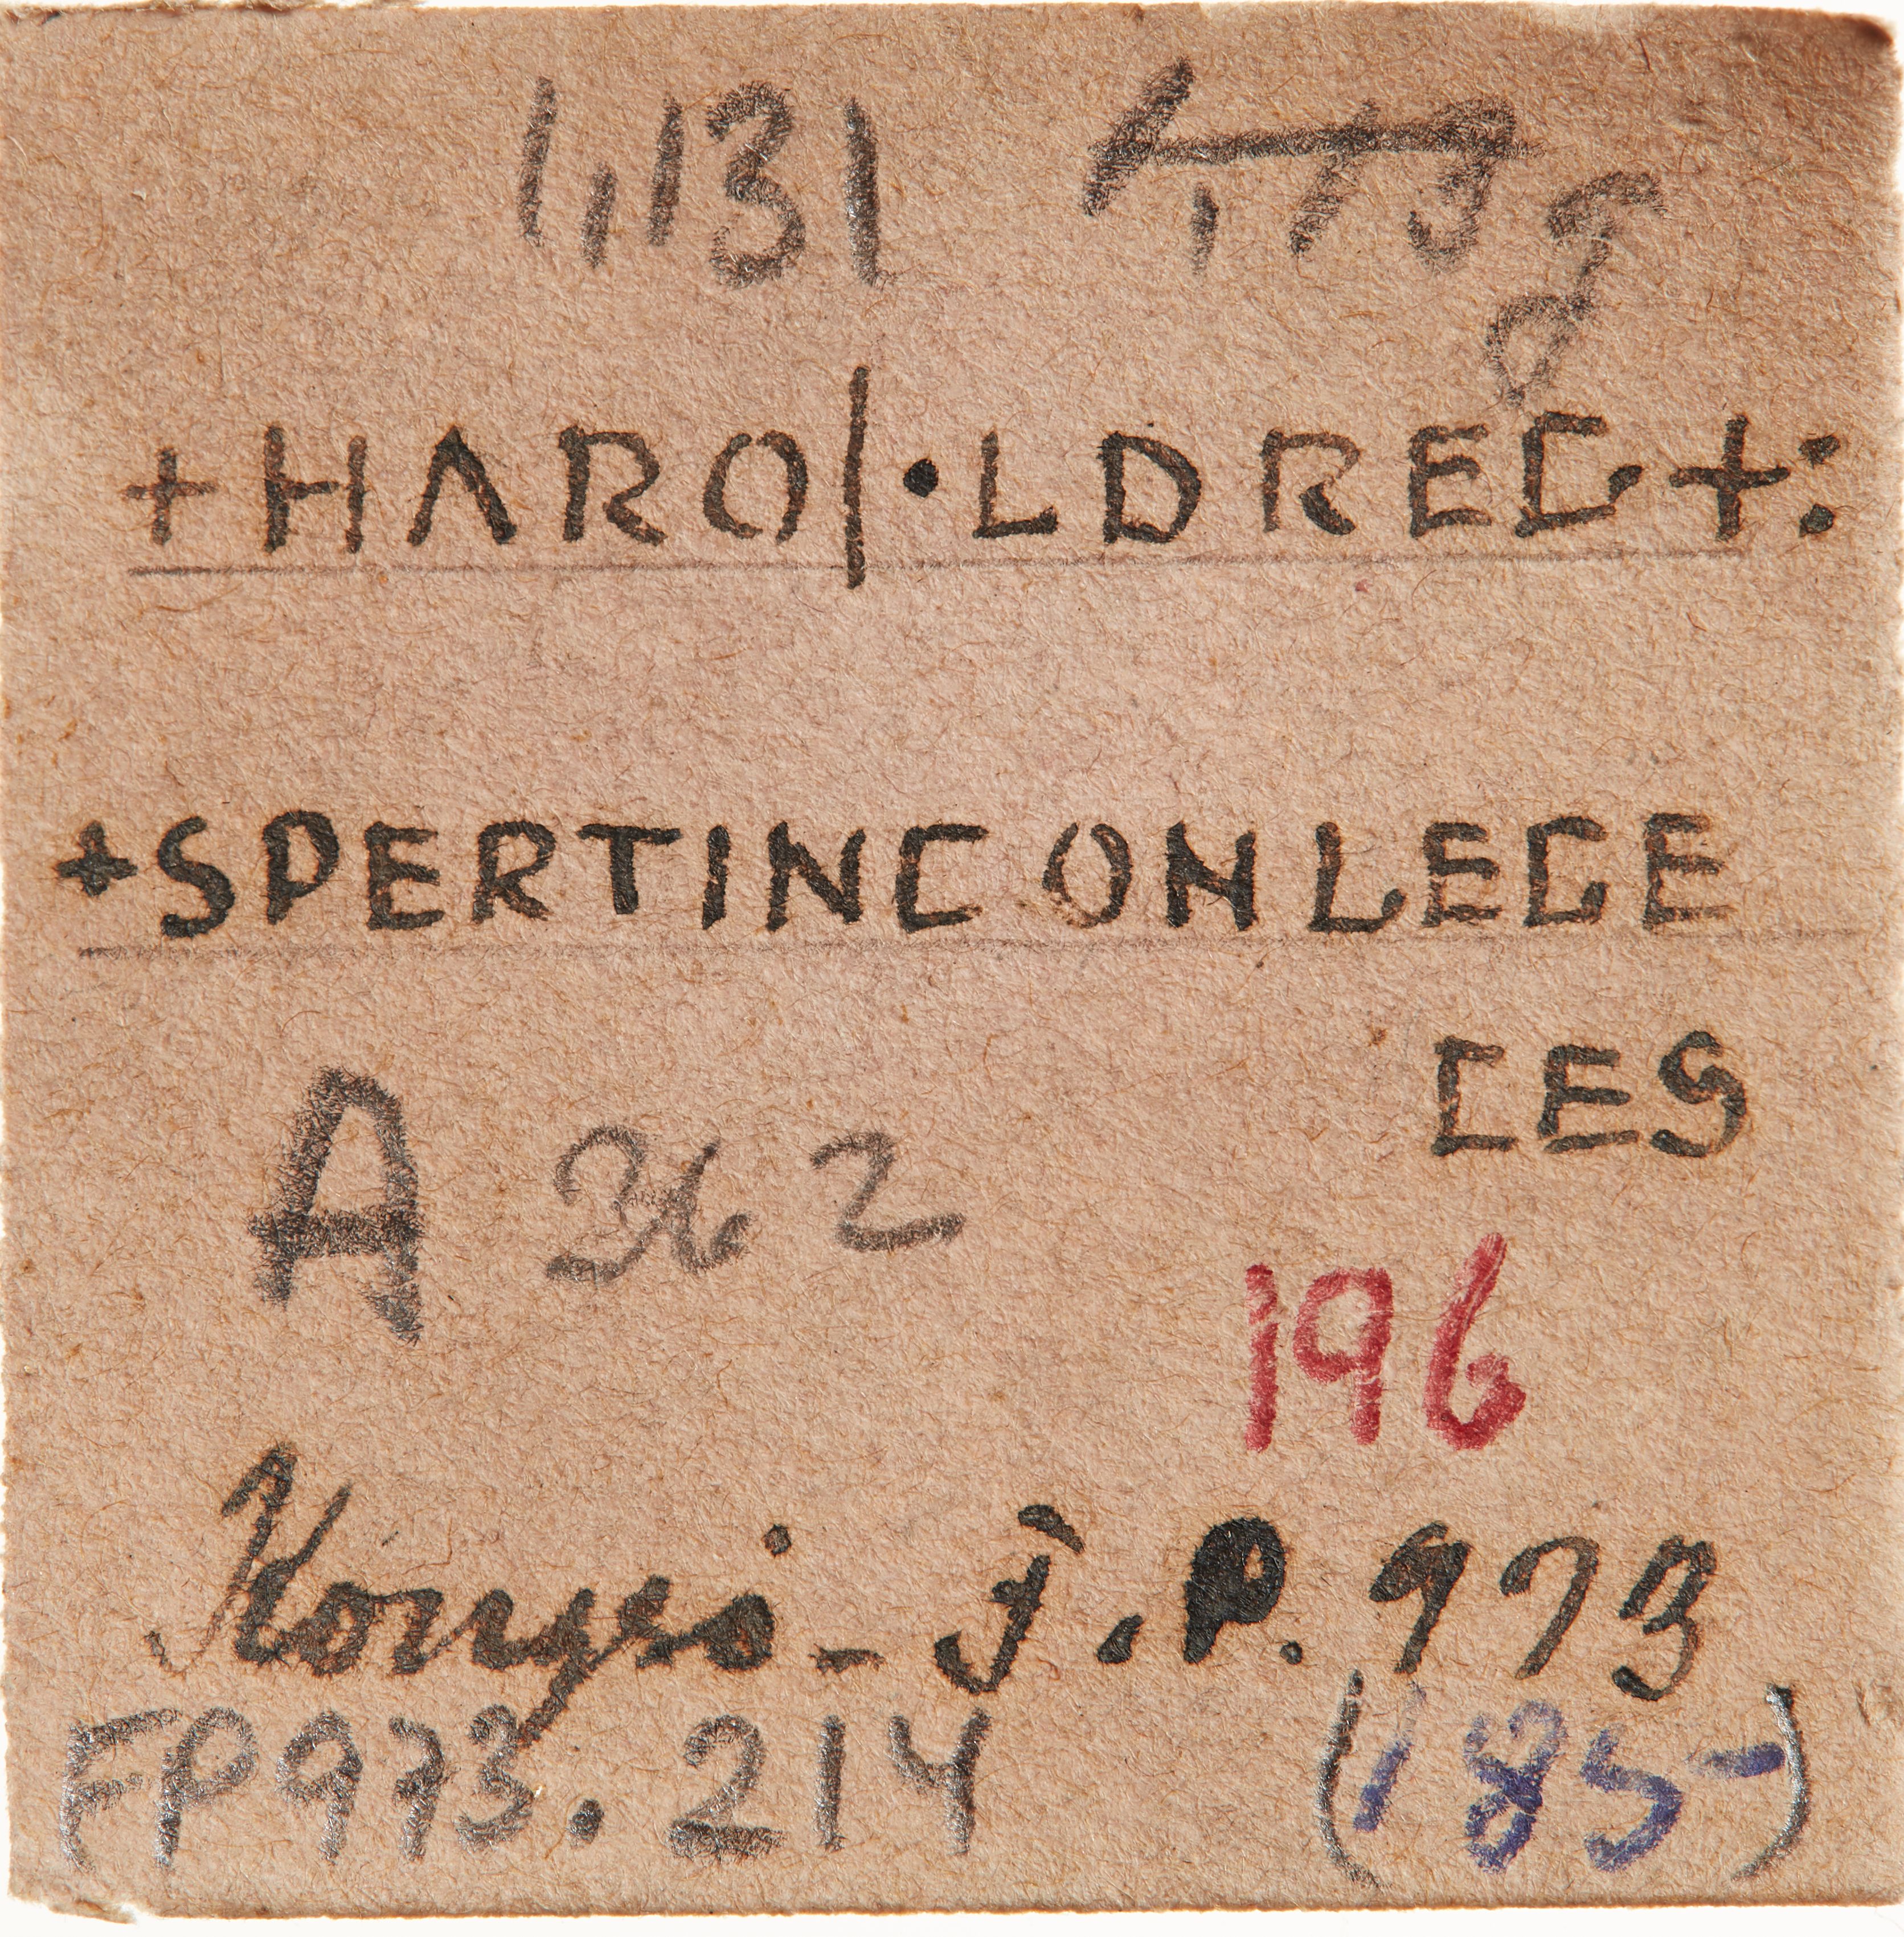 1,131 1,13 g
+HARO|·LDREC+:
+SPERTINC ON LEGE
CES
A 362
196
Kongsö - F.P. 973
FP973.214 (185-)